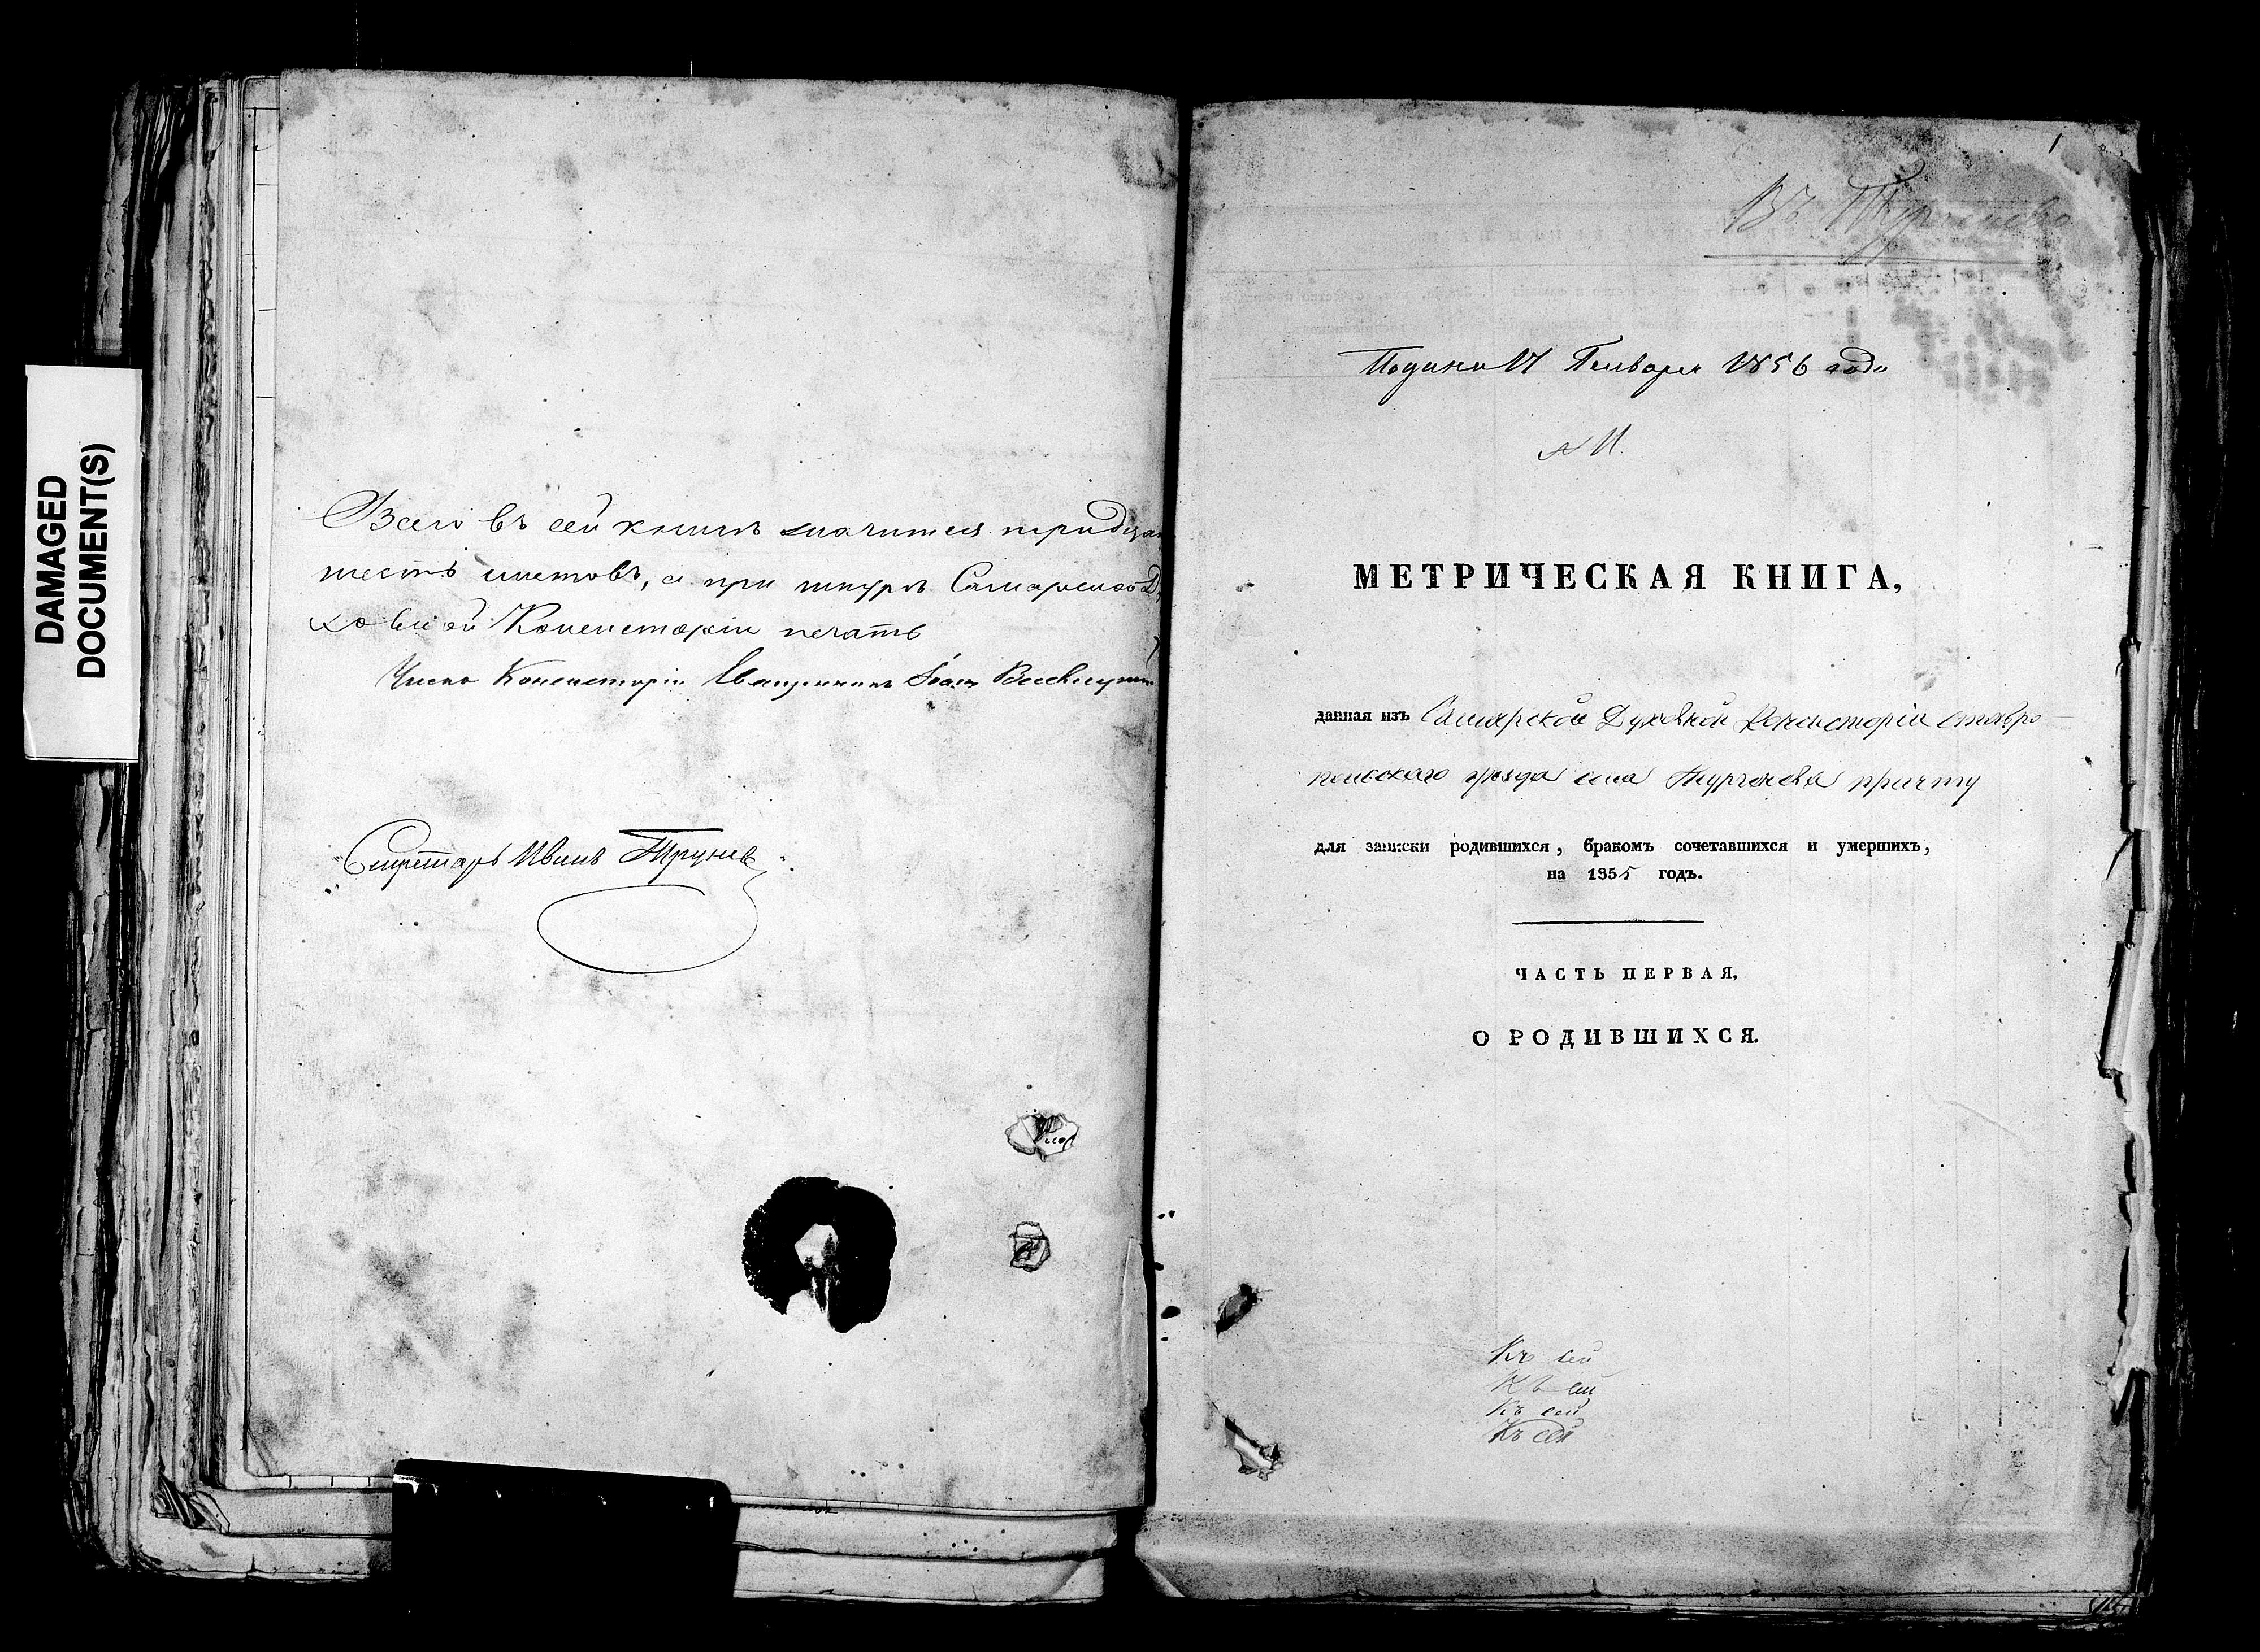 DAMAGED
DOCUMENT(S)
Всего въ сей книгѣ значится тридцат
шесть листовъ, а при шнурѣ Самарской Ду
ховной Консисторіи печать
Членъ Консисторіи Священникъ Іоаннъ
Секретарь Иванъ Труневъ
1
Въ Тургенево
Подана 17 Генваря 1856 года
МЕТРИЧЕСКАЯ КНИГА,
данная изъ Самарской Духовной Консисторіи Ставро
польскаго уѣзда села Тургенева причту
для записки родившихся, бракомъ сочетавшихся и умершихъ,
на 1855 годъ.
ЧАСТЬ ПЕРВАЯ,
О РОДИВШИХСЯ.
Къ сей
Къ сей
Къ сей
Къ сей